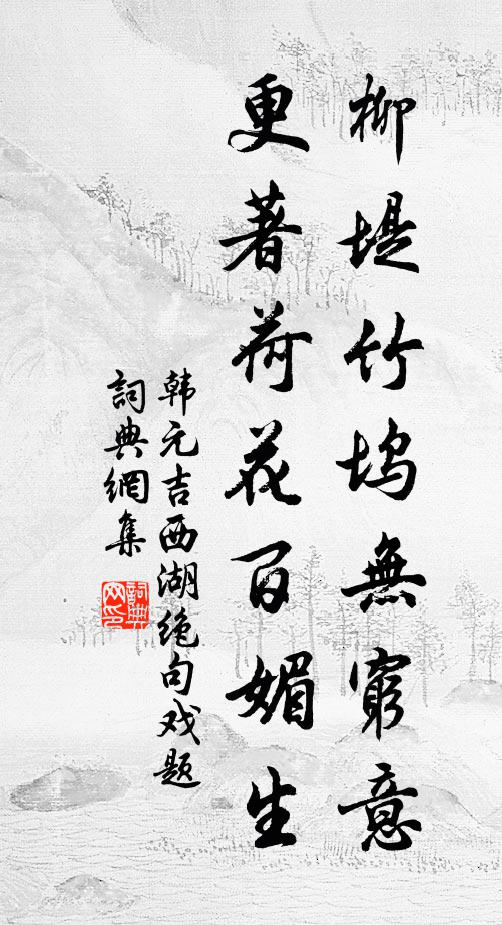 柳堤竹坞無窮意
更著荷花百媚生
韩元吉西湖绝句戏题
詞典網集
詞典网印